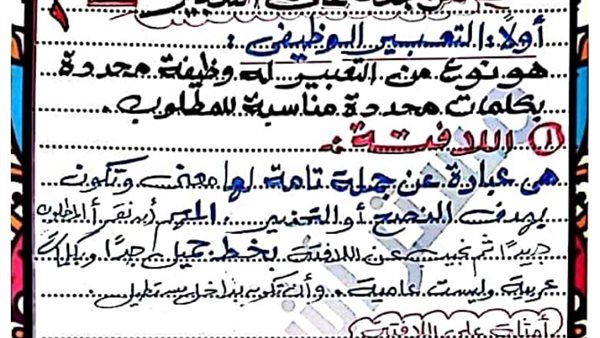 أولاً: التعبير الوظيفى:
هو نوع من التعبير له وظيفة محددة
بكلمات محددة مناسبة للمطلوب.
① اللافتة:
هى عبارة عن جملة تامة لها معنى وتكون
بهدف النصح أو التحذير. المهم أن نقرأ المطلوب
جيدًا ثم نجيب عن اللافتة بخط جميل جدًا وبكلمات
عربية وليست عامية. وأن تكون بداخل مستطيل.
أمثلة على اللافتة